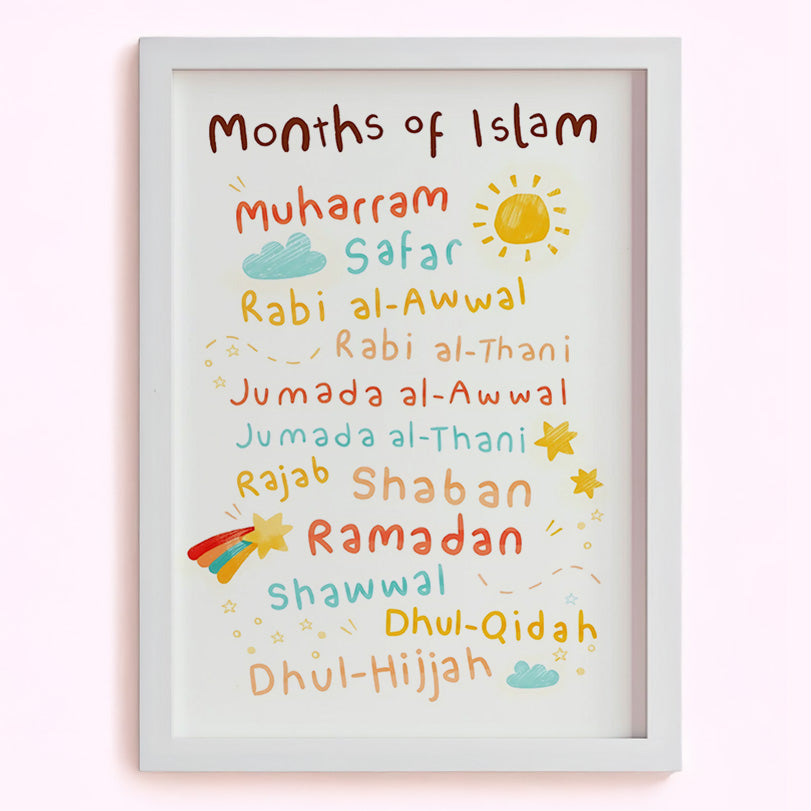 Months of Islam
Muharram
Safar
Rabi al-Awwal
Rabi al-Thani
Jumada al-Awwal
Jumada al-Thani
Rajab Shaban
Ramadan
Shawwal
Dhul-Qidah
Dhul-Hijjah